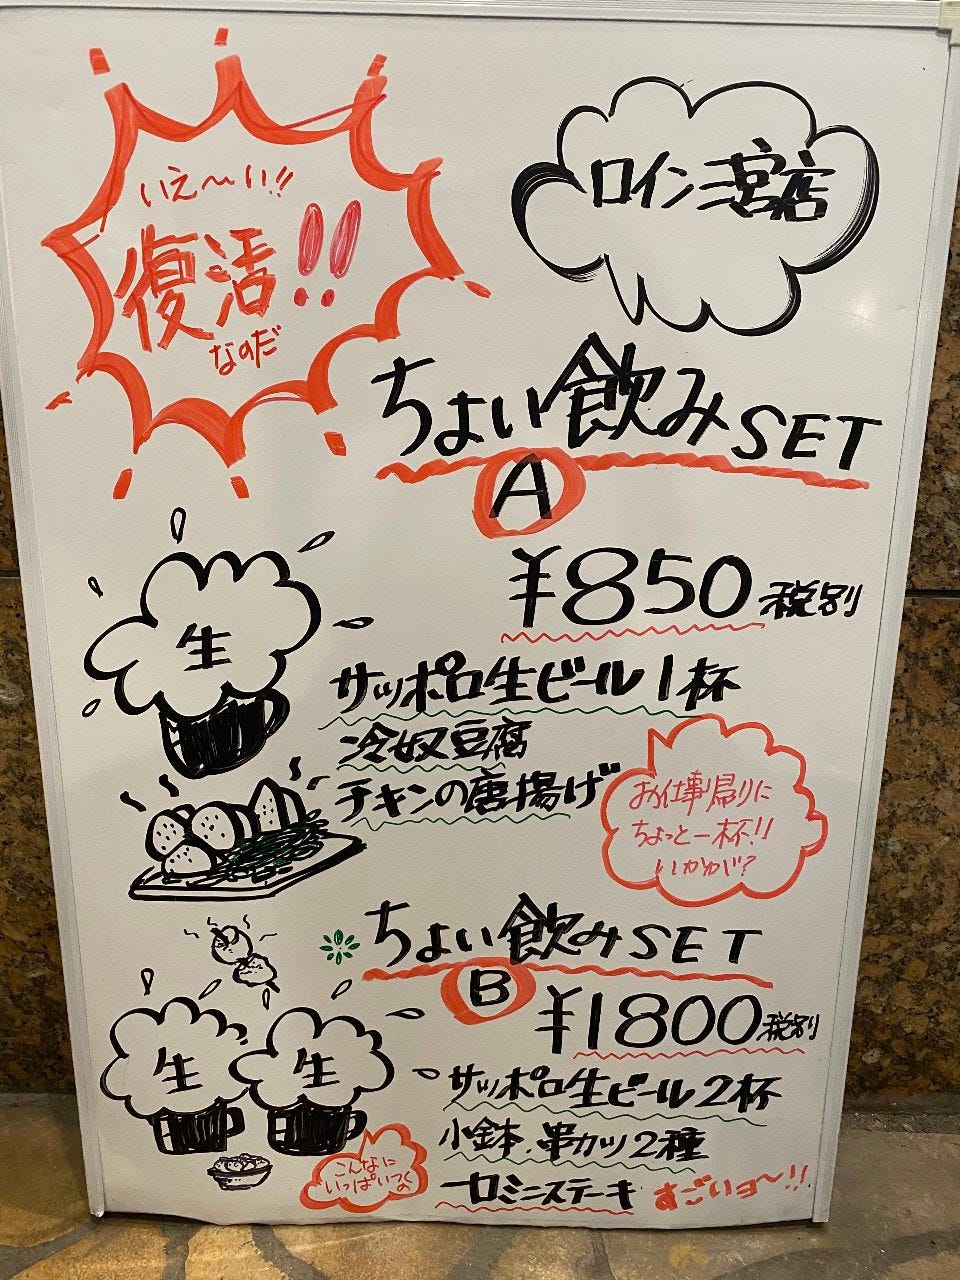 いえ〜い!!
復活!!
なのだ
ロイン三宮店
ちょい飲みSET
A
¥850税別
生
サッポロ生ビール1杯
冷奴豆腐
チキンの唐揚げ
お仕事帰りに
ちょっと一杯!!
いかが?
ちょい飲みSET
B
¥1800税別
生
生
サッポロ生ビール2杯
小鉢、串カツ2種
一口ミニステーキ
すごいヨ〜!!
こんなに
いっぱいつくの